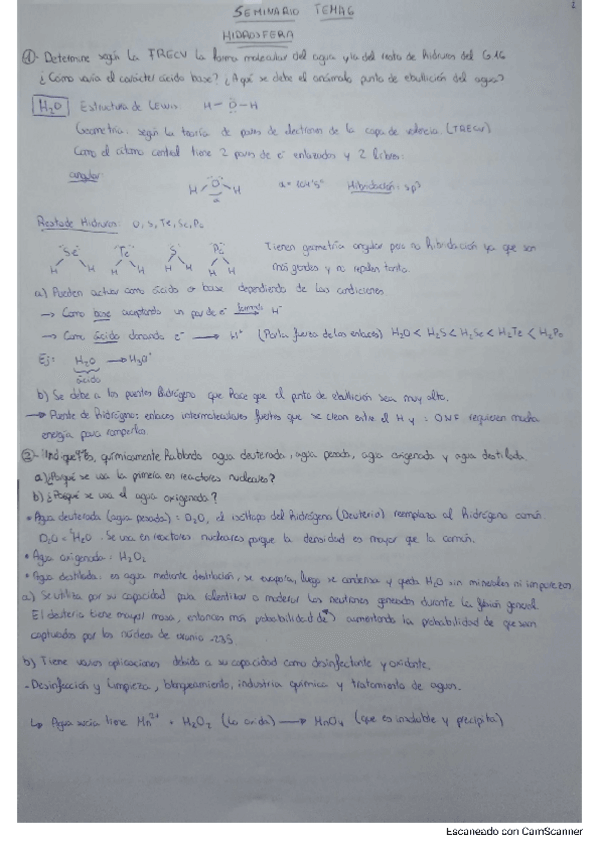 SEMINARIO TEMA 6
1
HIDROSFERA
①- Determine según la TRECV la forma molecular del agua y la del resto de hidruros del G.16
¿Cómo varía el carácter ácido base? ¿A qué se debe el anómalo punto de ebullición del agua?
H₂O Estructura de Lewis H-O-H
Geometría: según la teoría de pares de electrones de la capa de valencia (TRECV)
Como el átomo central tiene 2 pares de e⁻ enlazados y 2 libres:
angular: H O H a = 104'5° Hibridación: sp³
a
Resto de Hidruros: O, S, Te, Se, Po
Se Te S Po Tienen geometría angular pero no hibridación ya que son
H H H H H H H H más grandes y no repelen tanto.
a) Pueden actuar como ácido o base dependiendo de las condiciones.
→ Como base aceptando un par de e⁻ formando H⁻
→ Como ácido donando e⁻ → H⁺ (Por la fuerza de los enlaces) H₂O < H₂S < H₂Se < H₂Te < H₂Po
Ej: H₂O → H₃O⁺
ácido
b) Se debe a los puentes hidrógeno que hace que el punto de ebullición sea muy alto.
→ Puente de hidrógeno: enlaces intermoleculares fuertes que se crean entre el H y : O N F requieren mucha
energía para romperlos.
②- Indique, químicamente hablando agua deuterada, agua pesada, agua oxigenada y agua destilada.
a) ¿Porqué se usa la primera en reactores nucleares?
b) ¿Porqué se usa el agua oxigenada?
• Agua deuterada (agua pesada): D₂O, el isótopo del hidrógeno (Deuterio) reemplaza al hidrógeno común.
D₂O = ²H₂O. Se usa en reactores nucleares porque la densidad es mayor que la común.
• Agua oxigenada: H₂O₂
• Agua destilada: es agua mediante destilación, se evapora, luego se condensa y queda H₂O sin minerales ni impurezas
a) Se utiliza por su capacidad para ralentizar o moderar los neutrones generados durante la fisión
El deuterio tiene mayor masa, entonces más probabilidad de aumentando la probabilidad de que sean
capturados por los núcleos de uranio-235.
b) Tiene varias aplicaciones debido a su capacidad como desinfectante y oxidante.
- Desinfección y limpieza, blanqueamiento, industria química y tratamiento de aguas.
↳ Agua sucia tiene Mn²⁺ + H₂O₂ (lo oxida) → MnO₄ (que es insoluble y precipita)
Escaneado con CamScanner